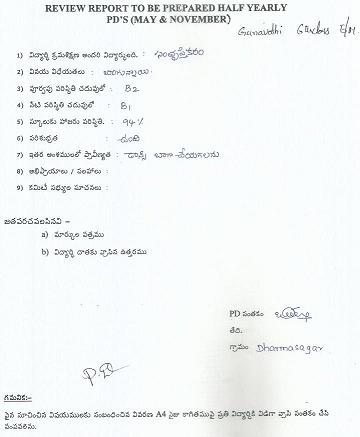 REVIEW REPORT TO BE PREPARED HALF YEARLY
PD'S (MAY & NOVEMBER)
1) విద్యార్థి క్రమశిక్షణ అందరి విద్యార్థులందు. : సంతృప్తికరం
2) వినయ విధేయతలు : బాగున్నాయి
3) పూర్వపు పరిస్థితి చదువులో : B2
4) నేటి పరిస్థితి చదువులో : B1
5) స్కూలుకు హాజరు పరిస్థితి. : 94%
6) పరిశుభ్రత : ఉంది
7) ఇతర అంశములలో ప్రావీణ్యత : డాన్స్ బాగా చేయగలను
8) అభిప్రాయాలు / సలహాలు :
9) కమిటీ సభ్యుల సూచనలు :
జతపరచవలసినవి –
a) మార్కుల పత్రము
b) విద్యార్థి దాతకు వ్రాసిన ఉత్తరము
PD సంతకం
తేది.
గ్రామం Dharmasagar
గమనిక:–
పైన సూచించిన విషయములకు సంబంధించిన వివరణ A4 సైజు కాగితముపై ప్రతి విద్యార్థికి విడిగా వ్రాసి సంతకం చేసి
పంపవలెను.